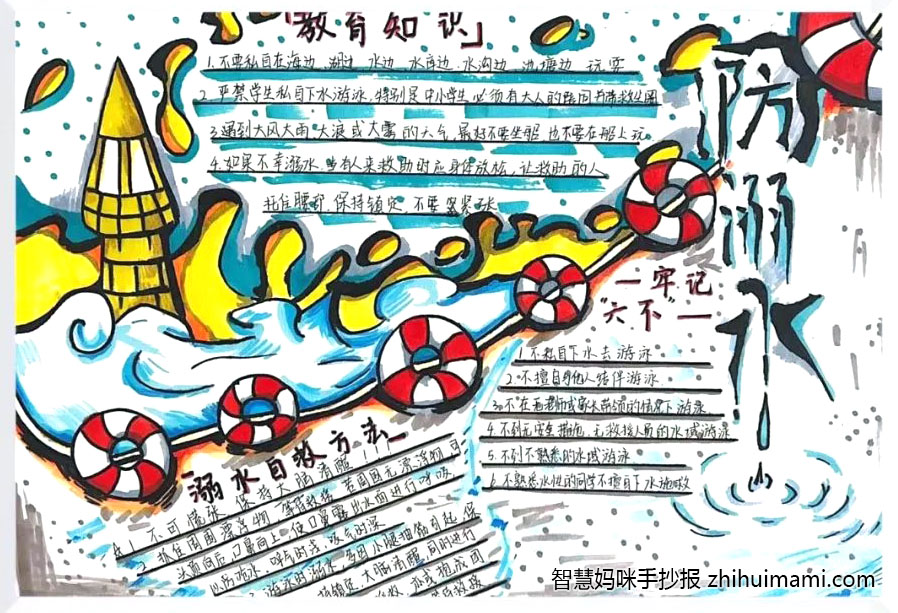 「教育知识」
1.不要私自在海边、湖边、水边、水库边、水沟边、池塘边 玩耍
2.严禁学生私自下水游泳,特别是中小学生必须有大人的陪同并带救生圈
3.遇到大风大雨,大浪或大雾的天气,最好不要坐船,也不要在船上玩。
4.如果不幸溺水,当有人来救助时应身体放松,让救助的人
托住腰部 保持镇定,不要紧张
防溺水
一牢记
"六不"一
1.不私自下水去游泳
2.不擅自与他人结伴游泳
3.不在无老师或家长带领的情况下游泳
4.不到无安全措施,无救援人员的水域游泳
5.不到不熟悉的水域游泳
6.不熟悉水性的同学不擅自下水施救
溺水自救方法
1.不可慌张,保持大脑清醒!!
2.抓住周围漂浮物,等待救援,若周围无漂浮物可
头顶向后,口鼻向上,使口鼻露出水面进行呼吸
以防呛水,呼气时浅,吸气时深
智慧妈咪手抄报 zhihuimami.com